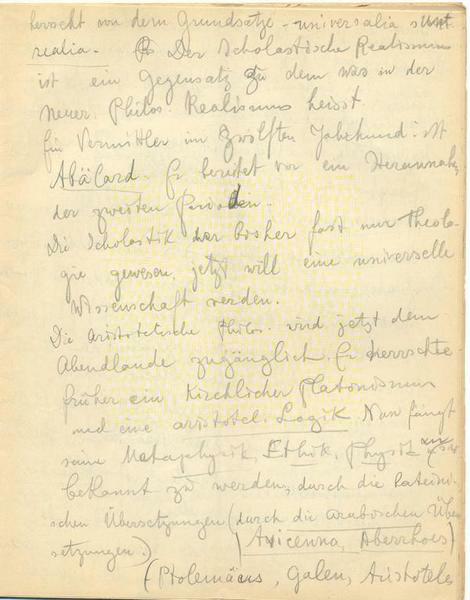 herscht von dem Grundsatze - universalia sunt
realia. - Der Scholastische Realismus
ist ein Gegensatz zu dem was in der
neuer. Philos. Realismus heisst.
Ein Vermittler im Zwölften Jahrhund. ist
Abälard. Er bereitet vor ein Herannah.
der zweiten Perioden.
Die Scholastik war bisher fast nur Theolo-
gie gewesen, jetzt will eine universelle
Wissenschaft werden.
Die aristotelische Philos. wird jetzt dem
Abendlande zugänglich. Er herrschte
früher ein Kirchlicher Platonismus
und eine aristotel. Logik. Nun fängt
seine Metaphysik, Ethik, Physik
bekannt zu werden, durch die Lateini-
schen Übersetzungen (durch die arabischen Über
setzungen.) (Avicenna, Aberrhoes)
(Ptolemäus, Galen, Aristoteles